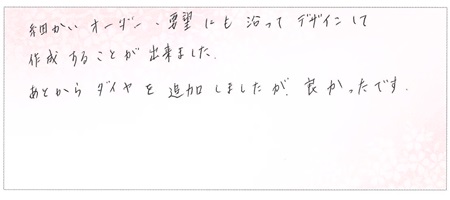 細かいオーダー、要望にも沿ってデザインして
作成することが出来ました。
あとからダイヤを追加しましたが、良かったです。